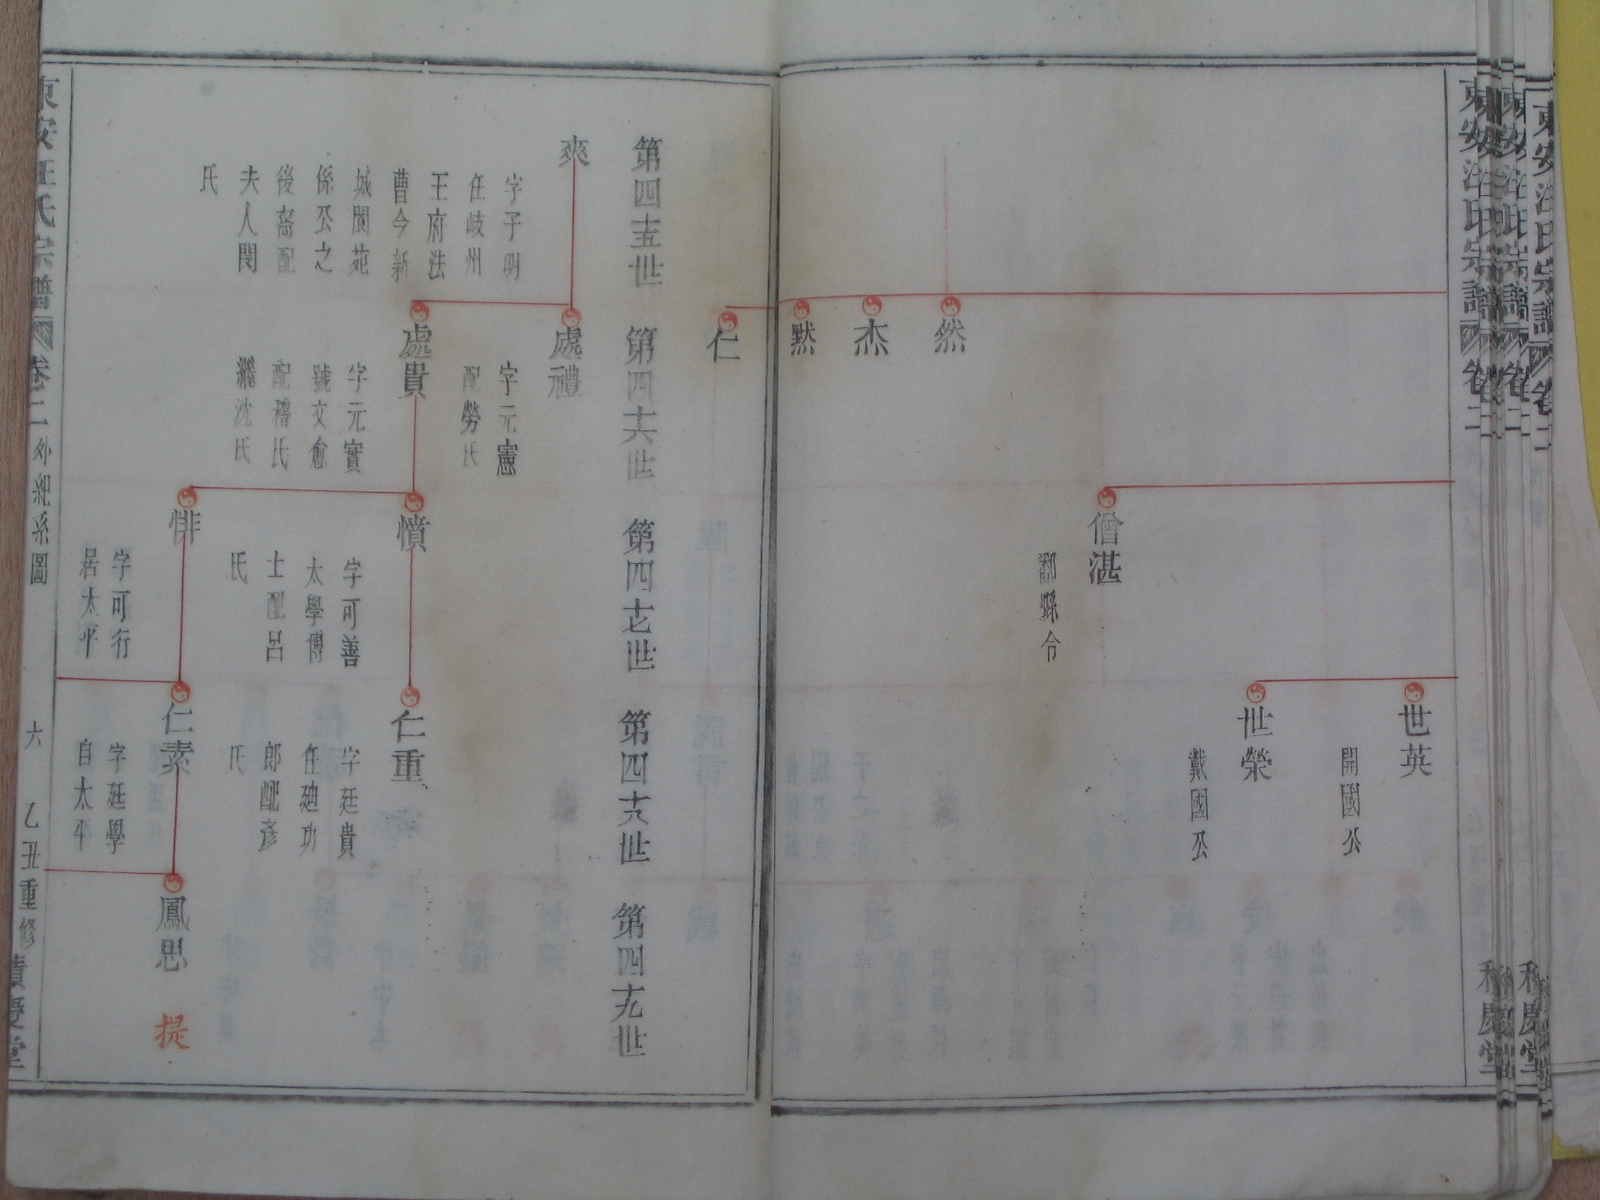 東安汪氏宗譜
卷二
然
杰
默
仁
僧湛
鄱縣令
世英
開國公
世榮
戴國公
第四十五世
第四十六世
第四十七世
第四十八世
第四十九世
爽
字子明
任岐州
王府法
曹今新
城閬苑
係公之
後裔配
夫人閔
氏
處禮
字元憲
配勞氏
處貴
字元實
號文愈
配稽氏
繼沈氏
憤
字可善
太學博
士配呂
氏
悱
字可行
居太平
仁重
字廷貴
任廸功
郎配彥
氏
仁素
字廷學
自太平
鳳思
提
東安汪氏宗譜
卷二
外紀系圖
六
乙丑重修
積慶堂